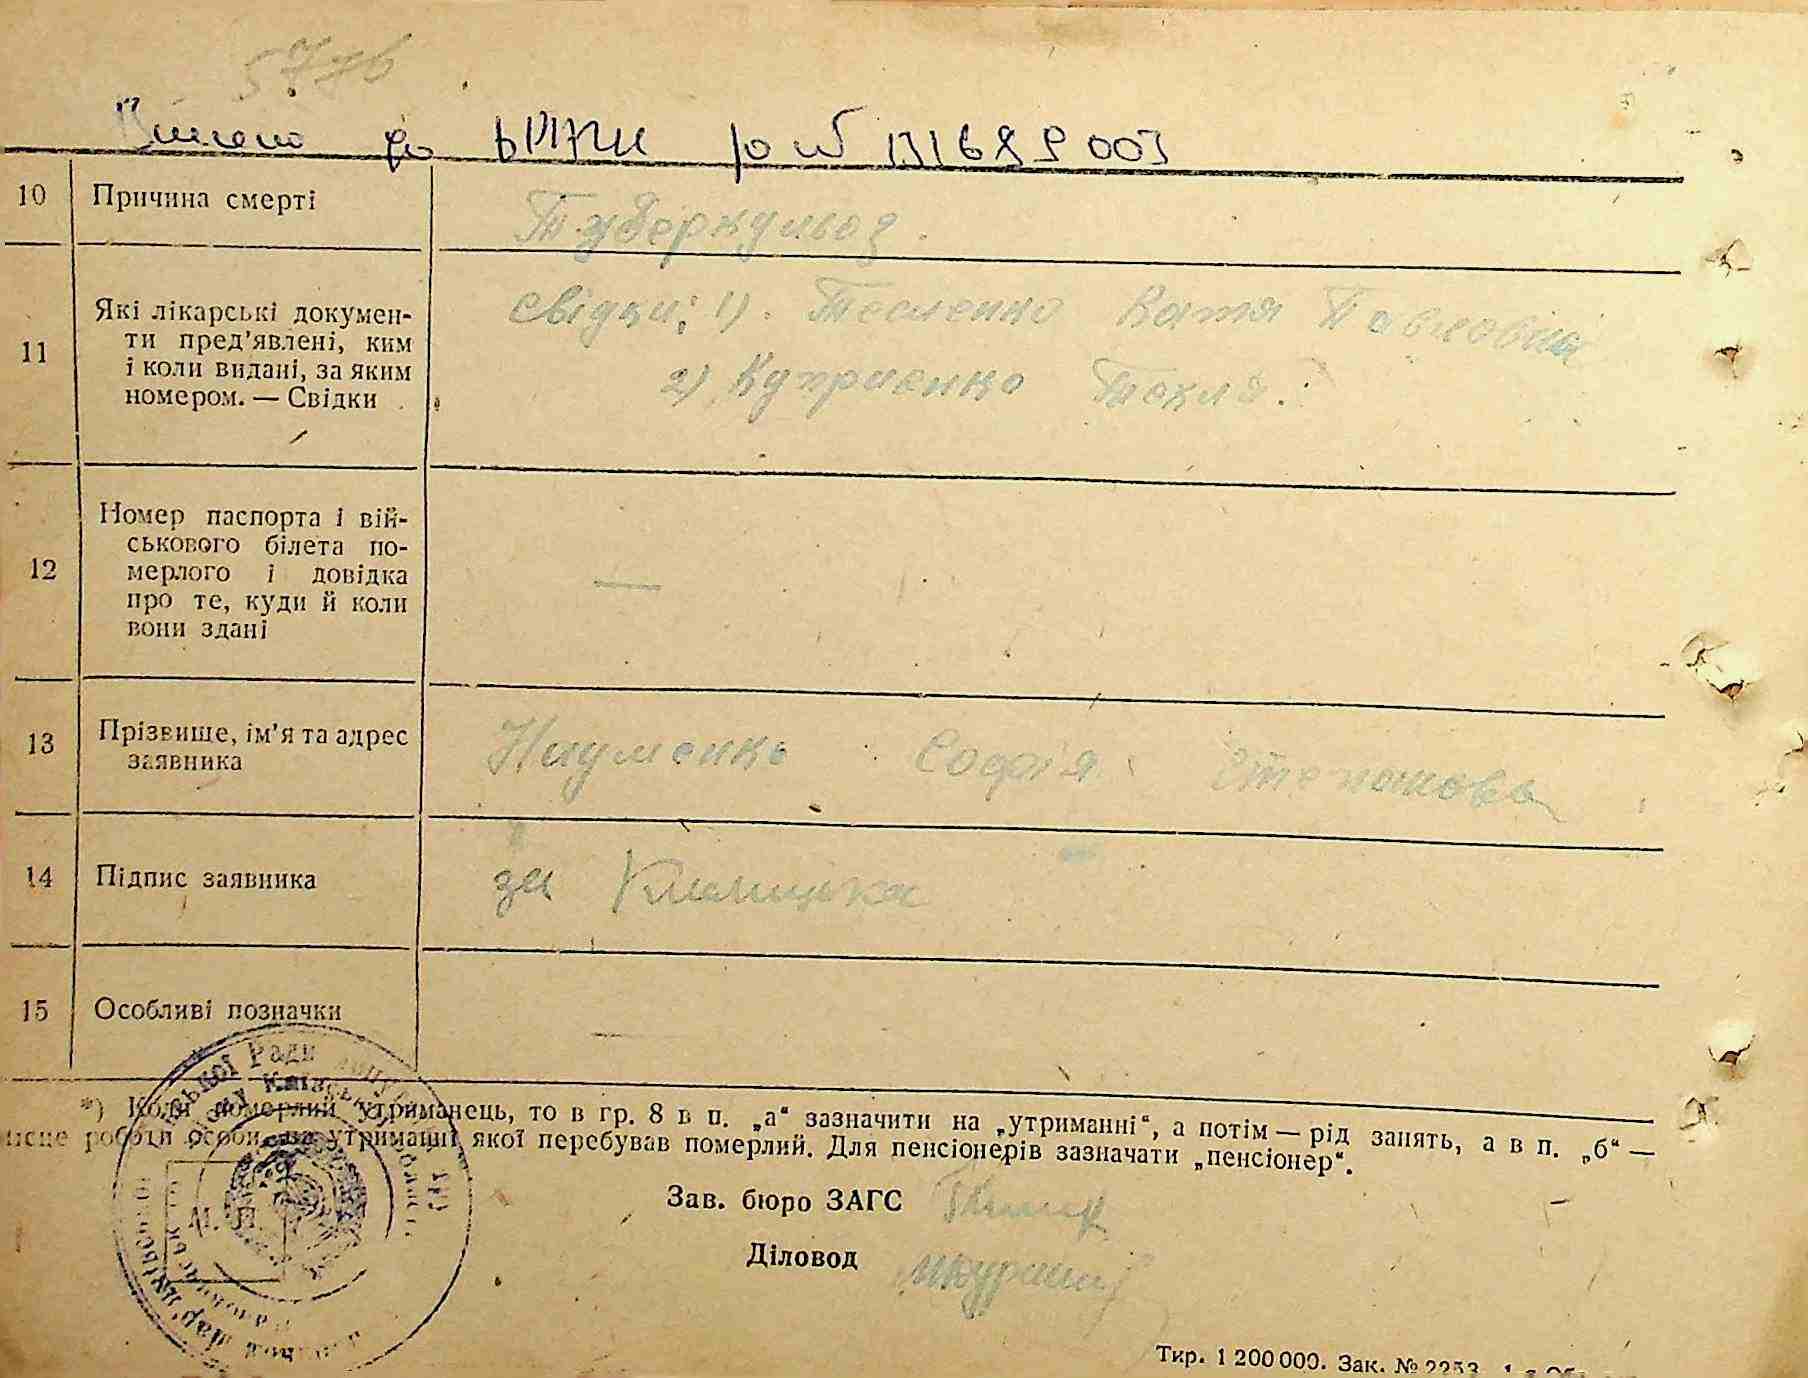 5776
Внесено до
10
Причина смерті
Туберкульоз.
11
Які лікарські докумен-
ти пред'явлені, ким
і коли видані, за яким
номером. — Свідки
Свідки: 1). Тесленко Катя Павловна
2) Куприенко Текля.
12
Номер паспорта і вій-
ськового білета по-
мерлого і довідка
про те, куди й коли
вони здані
—
13
Прізвище, ім'я та адрес
заявника
Науменко Софія Степановa
14
Підпис заявника
за
15
Особливі позначки
—
*) Коли померлий утриманець, то в гр. 8 в п. „а“ зазначити на „утриманні“, а потім — рід занять, а в п. „б“ —
місце роботи особи, на утриманні якої перебував померлий. Для пенсіонерів зазначати „пенсіонер“.
М. П.
Зав. бюро ЗАГС
Діловод
Тир. 1 200 000. Зак. № 2253